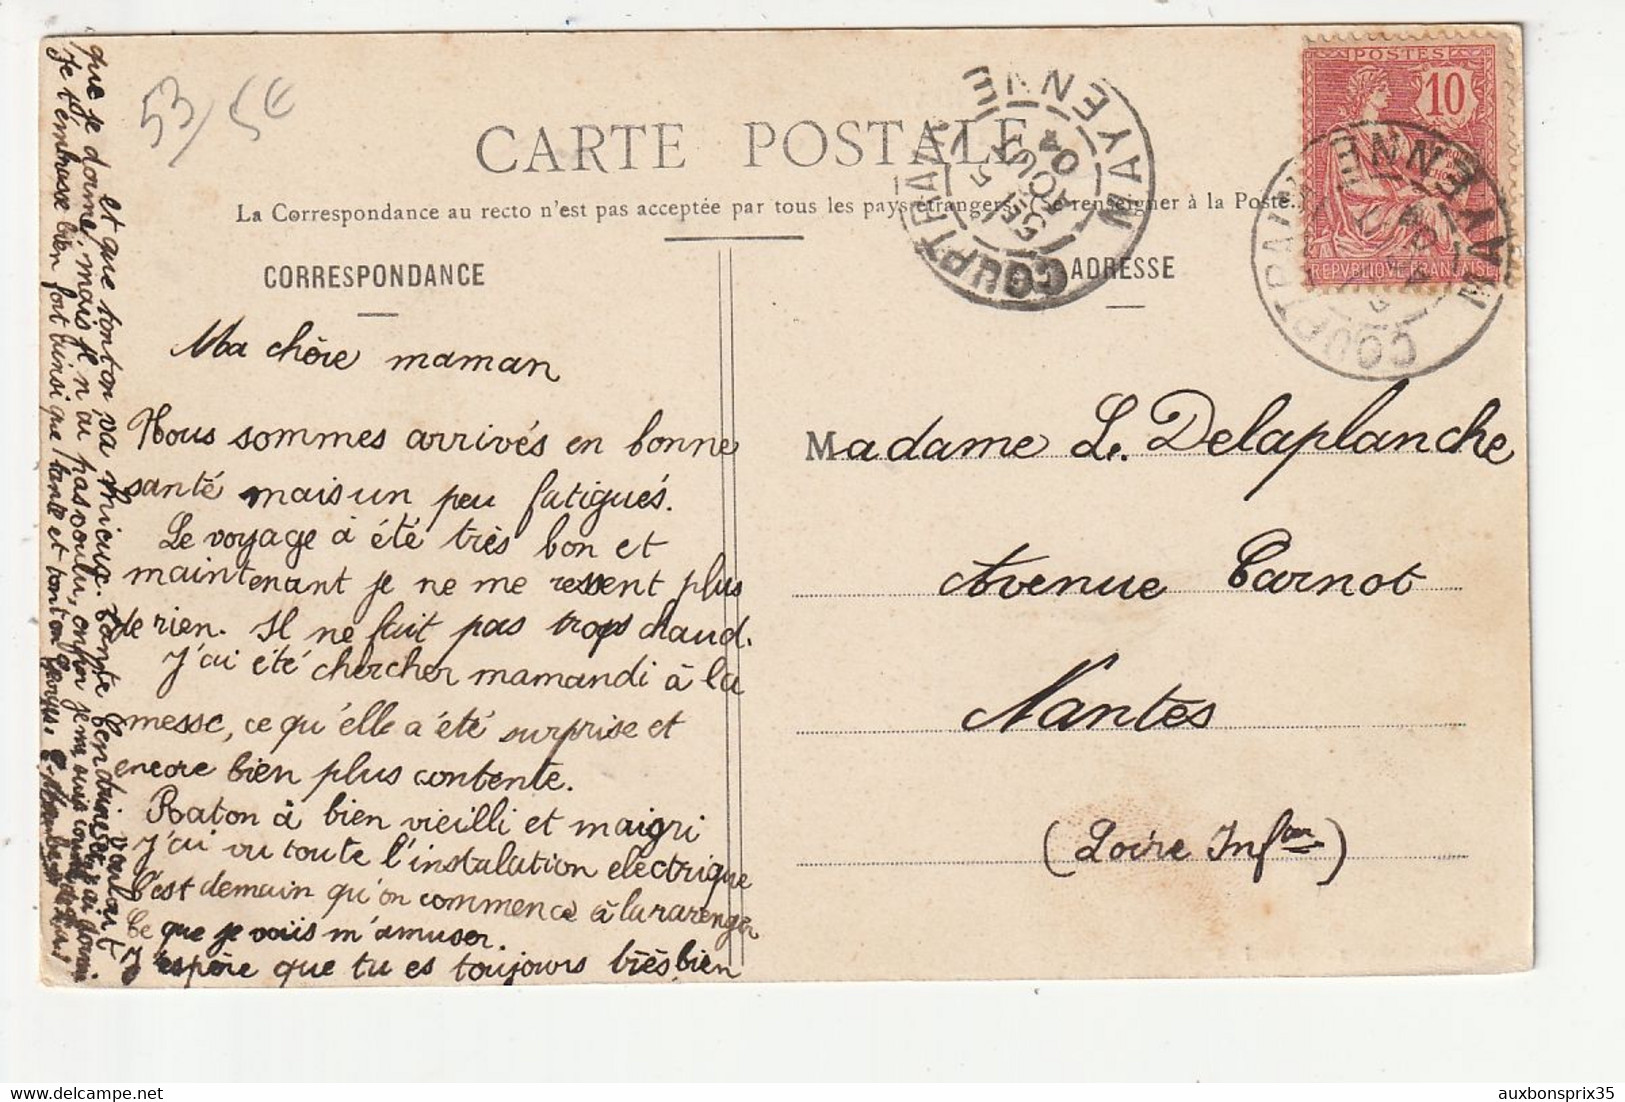 53/5€
CARTE POSTALE
La Correspondance au recto n'est pas acceptée par tous les pays étrangers. Se renseigner à la Poste.
CORRESPONDANCE
ADRESSE
POSTES
10
REPVBLIQVE FRANÇAISE
COUPTRAIN MAYENNE
5 AOUT 04
COUPTRAIN MAYENNE
Ma chère maman
Nous sommes arrivés en bonne
santé mais un peu fatigués.
Le voyage à été très bon et
maintenant je ne me ressent plus
de rien. Il ne fait pas trop chaud.
J'ai été chercher mamandi à la
messe, ce qu'elle a été surprise et
encore bien plus contente.
Raton à bien vieilli et maigri
J'ai vu toute l'instalation electrique
C'est demain qu'on commence à la rarenger
Ce que je vais m'amuser.
J'espère que tu es toujours très bien
et que tonton va mieux. Tante
que je dorme, mais je n'ai pas voulu, enfin je me suis
Je t'embrasse bien fort ainsi que tante et tonton Georges.
Madame L. Delaplanche
Avenue Carnot
Nantes
(Loire Infre)
auxbonsprix35